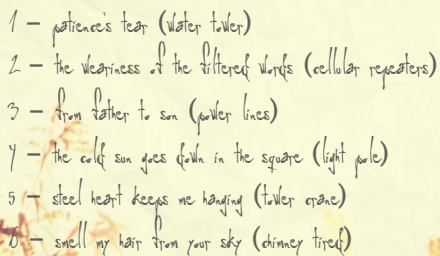 1 – patience's tear (water tower)
2 – the weariness of the filtered words (cellular repeaters)
3 – from father to son (power lines)
4 – the cold sun goes down in the square (light pole)
5 – steel heart keeps me hanging (tower crane)
6 – smell my hair from your sky (chimney tired)